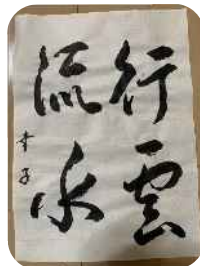 行雲
流水
幸子